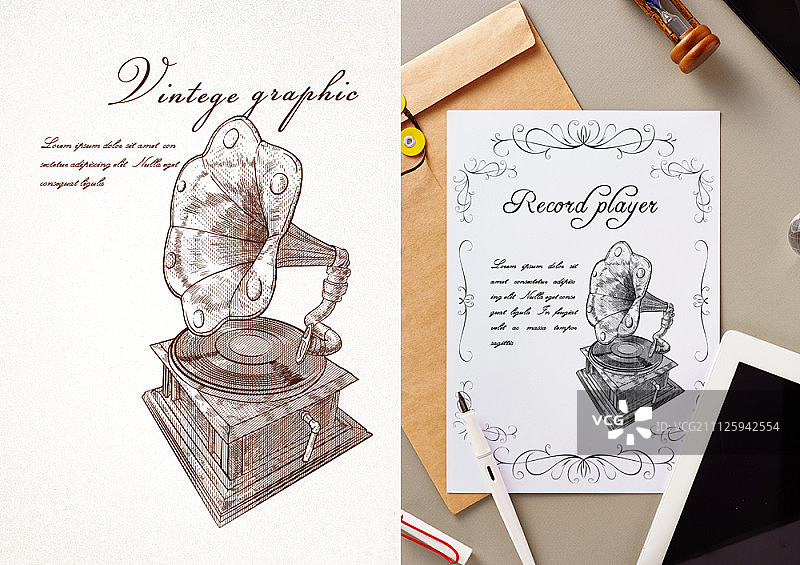 Vintege graphic
Lorem ipsum dolor sit amet con
sectetur adipiscing elit Nulla eget
consequat ligula
Record player
Lorem ipsum dolor sit
amet consectetur adipisc
ing elit Nulla eget conse
quat ligula In feugiat
velit ac massa tempor
sagittis
VCG
VCG211125942554